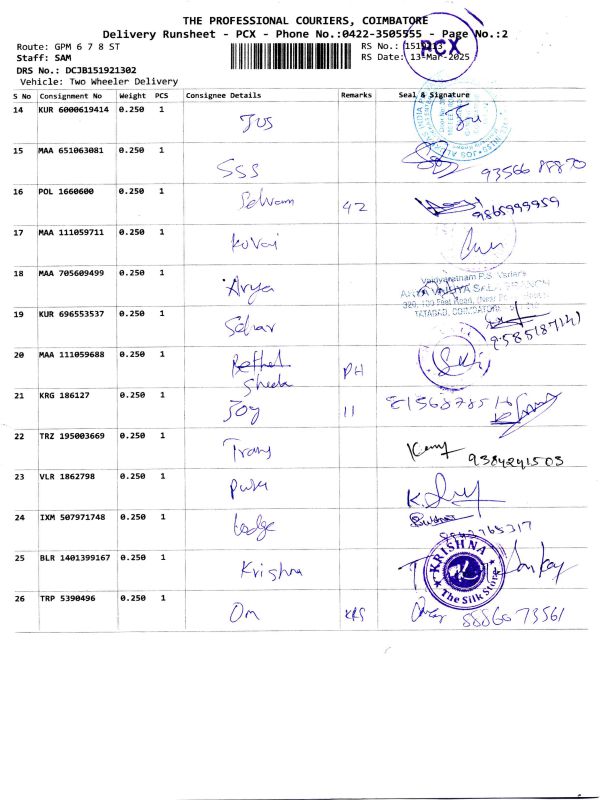 THE PROFESSIONAL COURIERS, COIMBATORE
Delivery Runsheet - PCX - Phone No.:0422-3505555 - Page No.:2
Route: GPM 6 7 8 ST
RS No.: 1519213
PCX
Staff: SAM
RS Date: 13-Mar-2025
DRS No.: DCJB151921302
Vehicle: Two Wheeler Delivery
S No Consignment No Weight PCS Consignee Details Remarks Seal & Signature
14 KUR 6000619414 0.250 1 Jus
15 MAA 651063081 0.250 1 SSS 93566 88870
16 POL 1660600 0.250 1 Selvam 42 9865999959
17 MAA 111059711 0.250 1 Kovai
18 MAA 705609499 0.250 1 Arya
Vaidyaratnam P.S. Varier's
TATABAD, COIMBATORE
19 KUR 696553537 0.250 1 Sekar
20 MAA 111059688 0.250 1 Bethel PH
Sheela
21 KRG 186127 0.250 1 Joy 11
22 TRZ 195003669 0.250 1 Trans 9384241503
23 VLR 1862798 0.250 1
24 IXM 507971748 0.250 1 Lodge
25 BLR 1401399167 0.250 1 Krishna
KRISHNA
The Silk Store
26 TRP 5390496 0.250 1 Om KRS 88866 73561